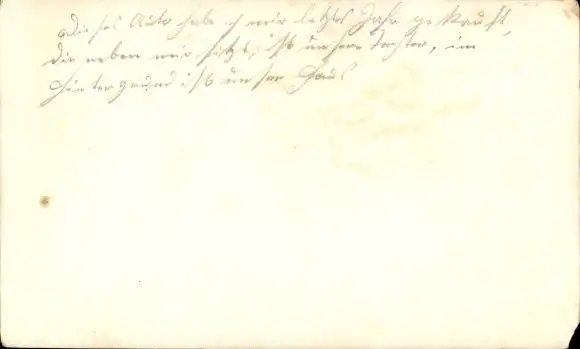 Dieses Auto habe ich mir letztes Jahr gekauft,
die neben mir sitzt, ist unsere Tochter, im
Hintergrund ist unser Haus